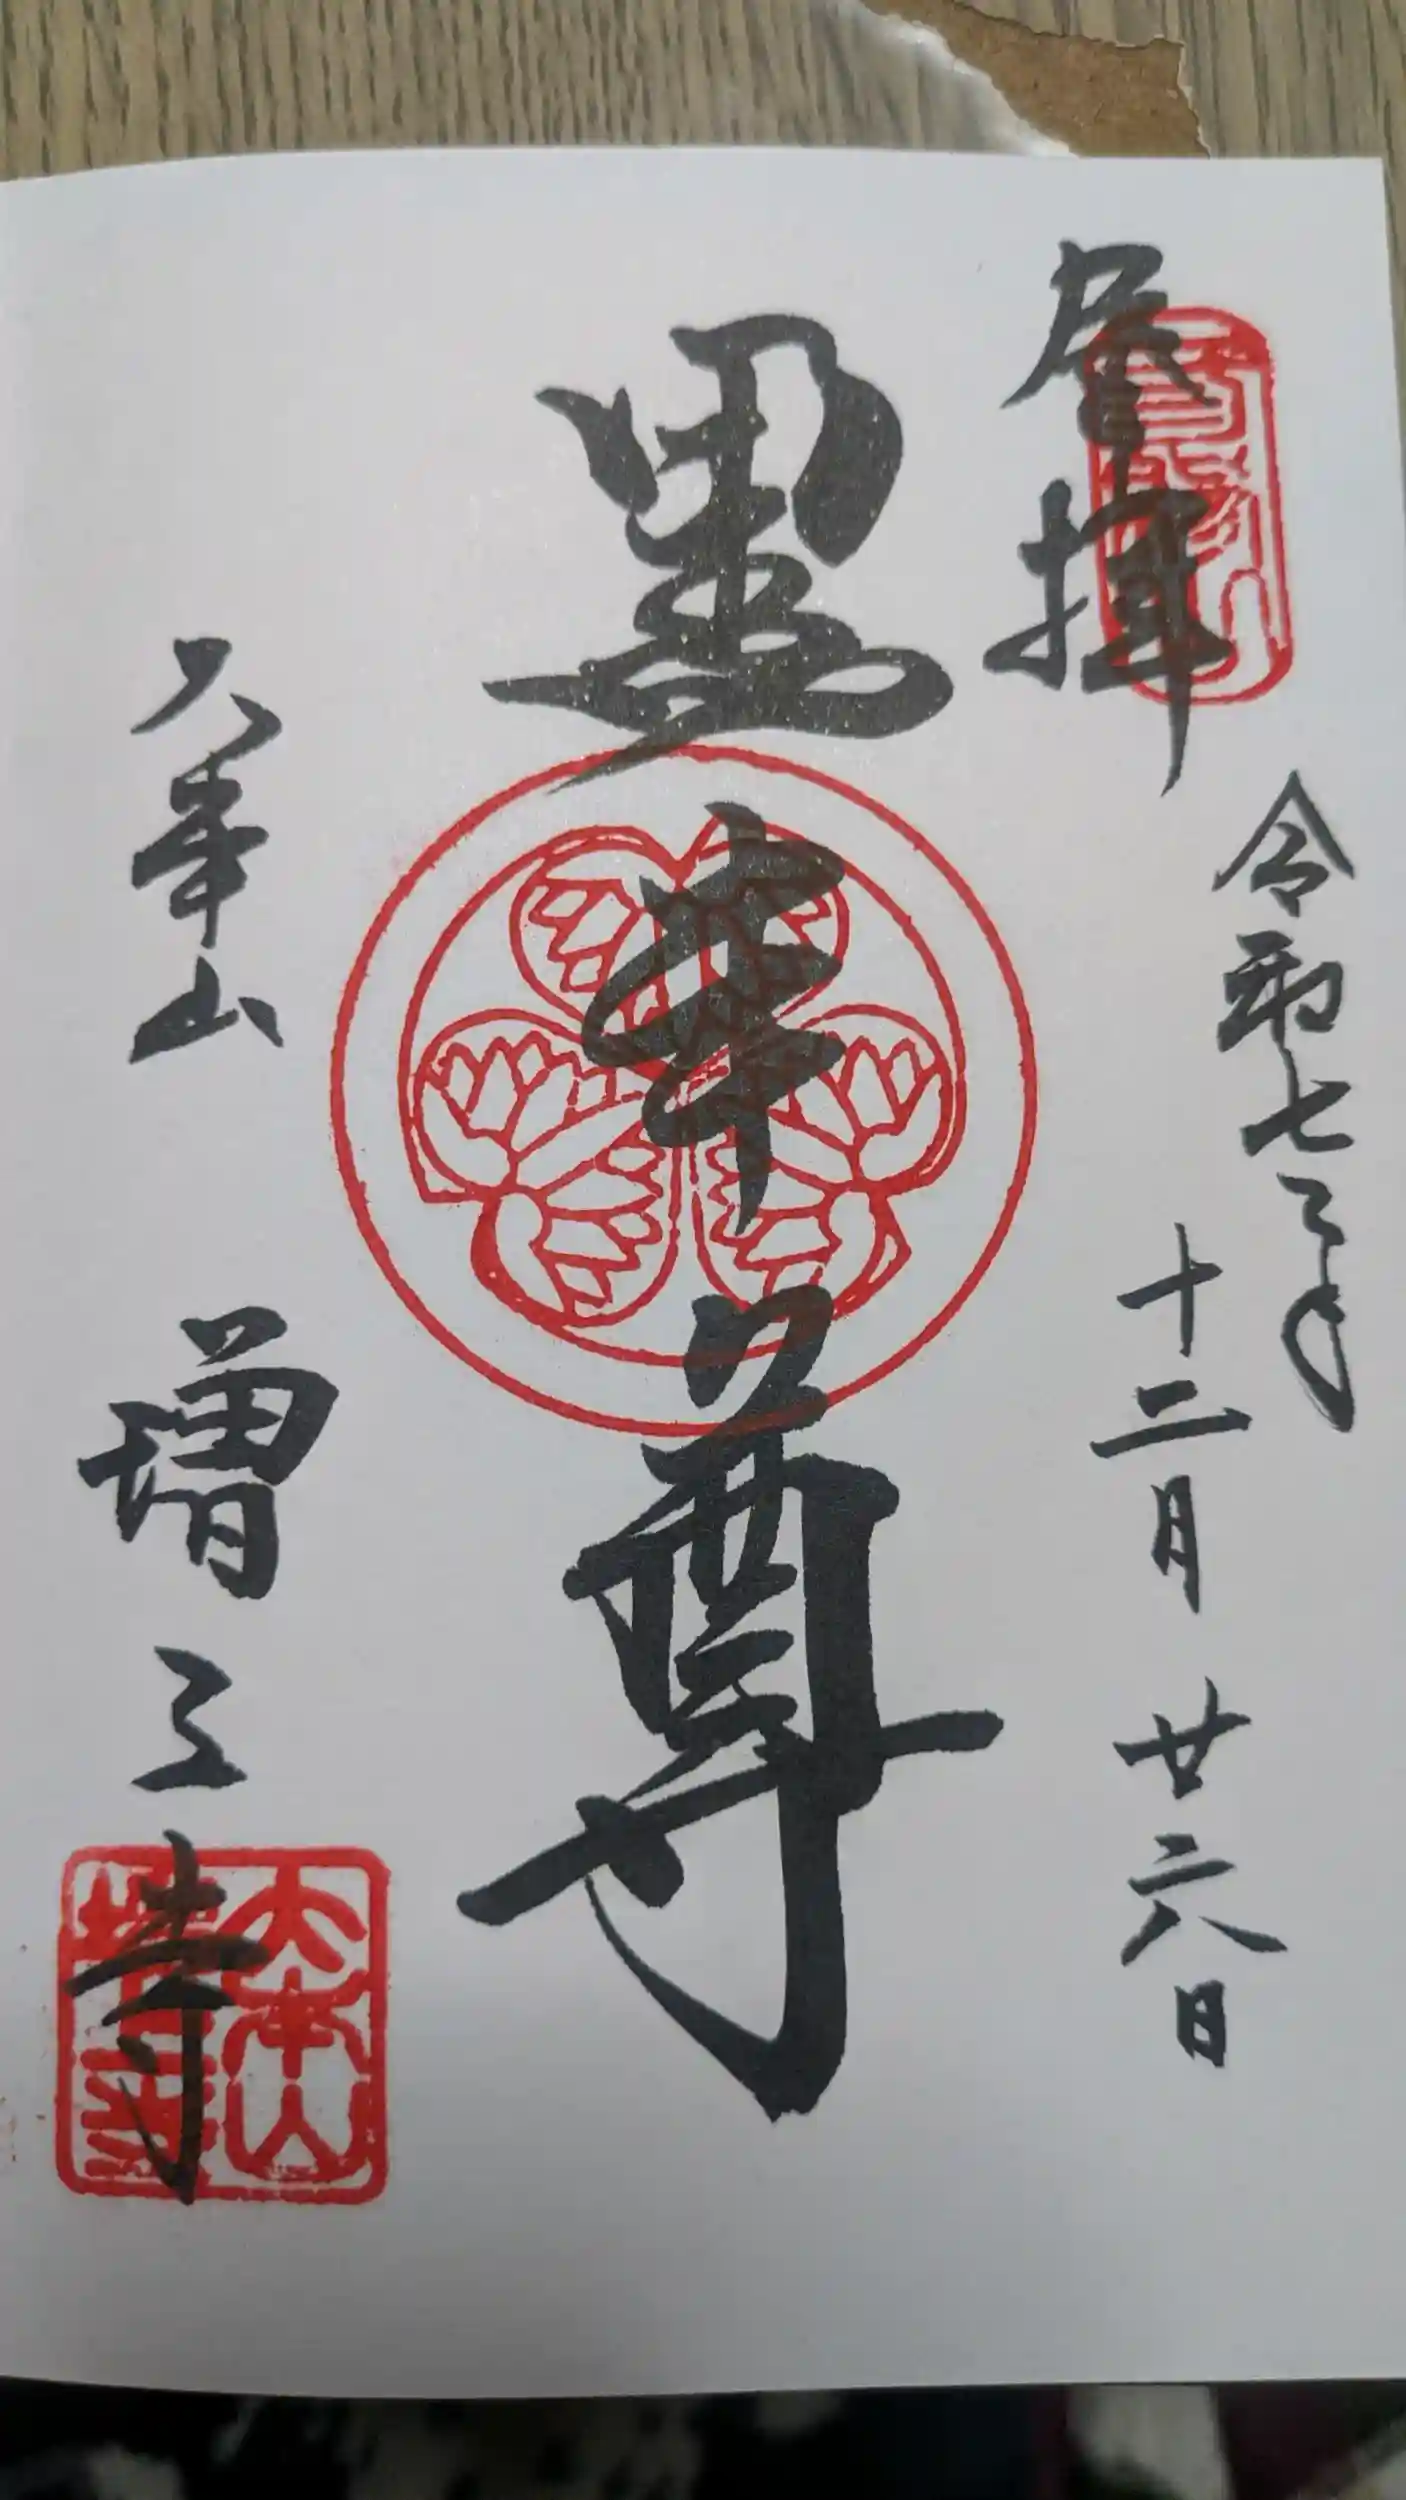 奉拝
令和七年
十二月廿六日
黒本尊
大本山
増上寺
大本山
増上寺